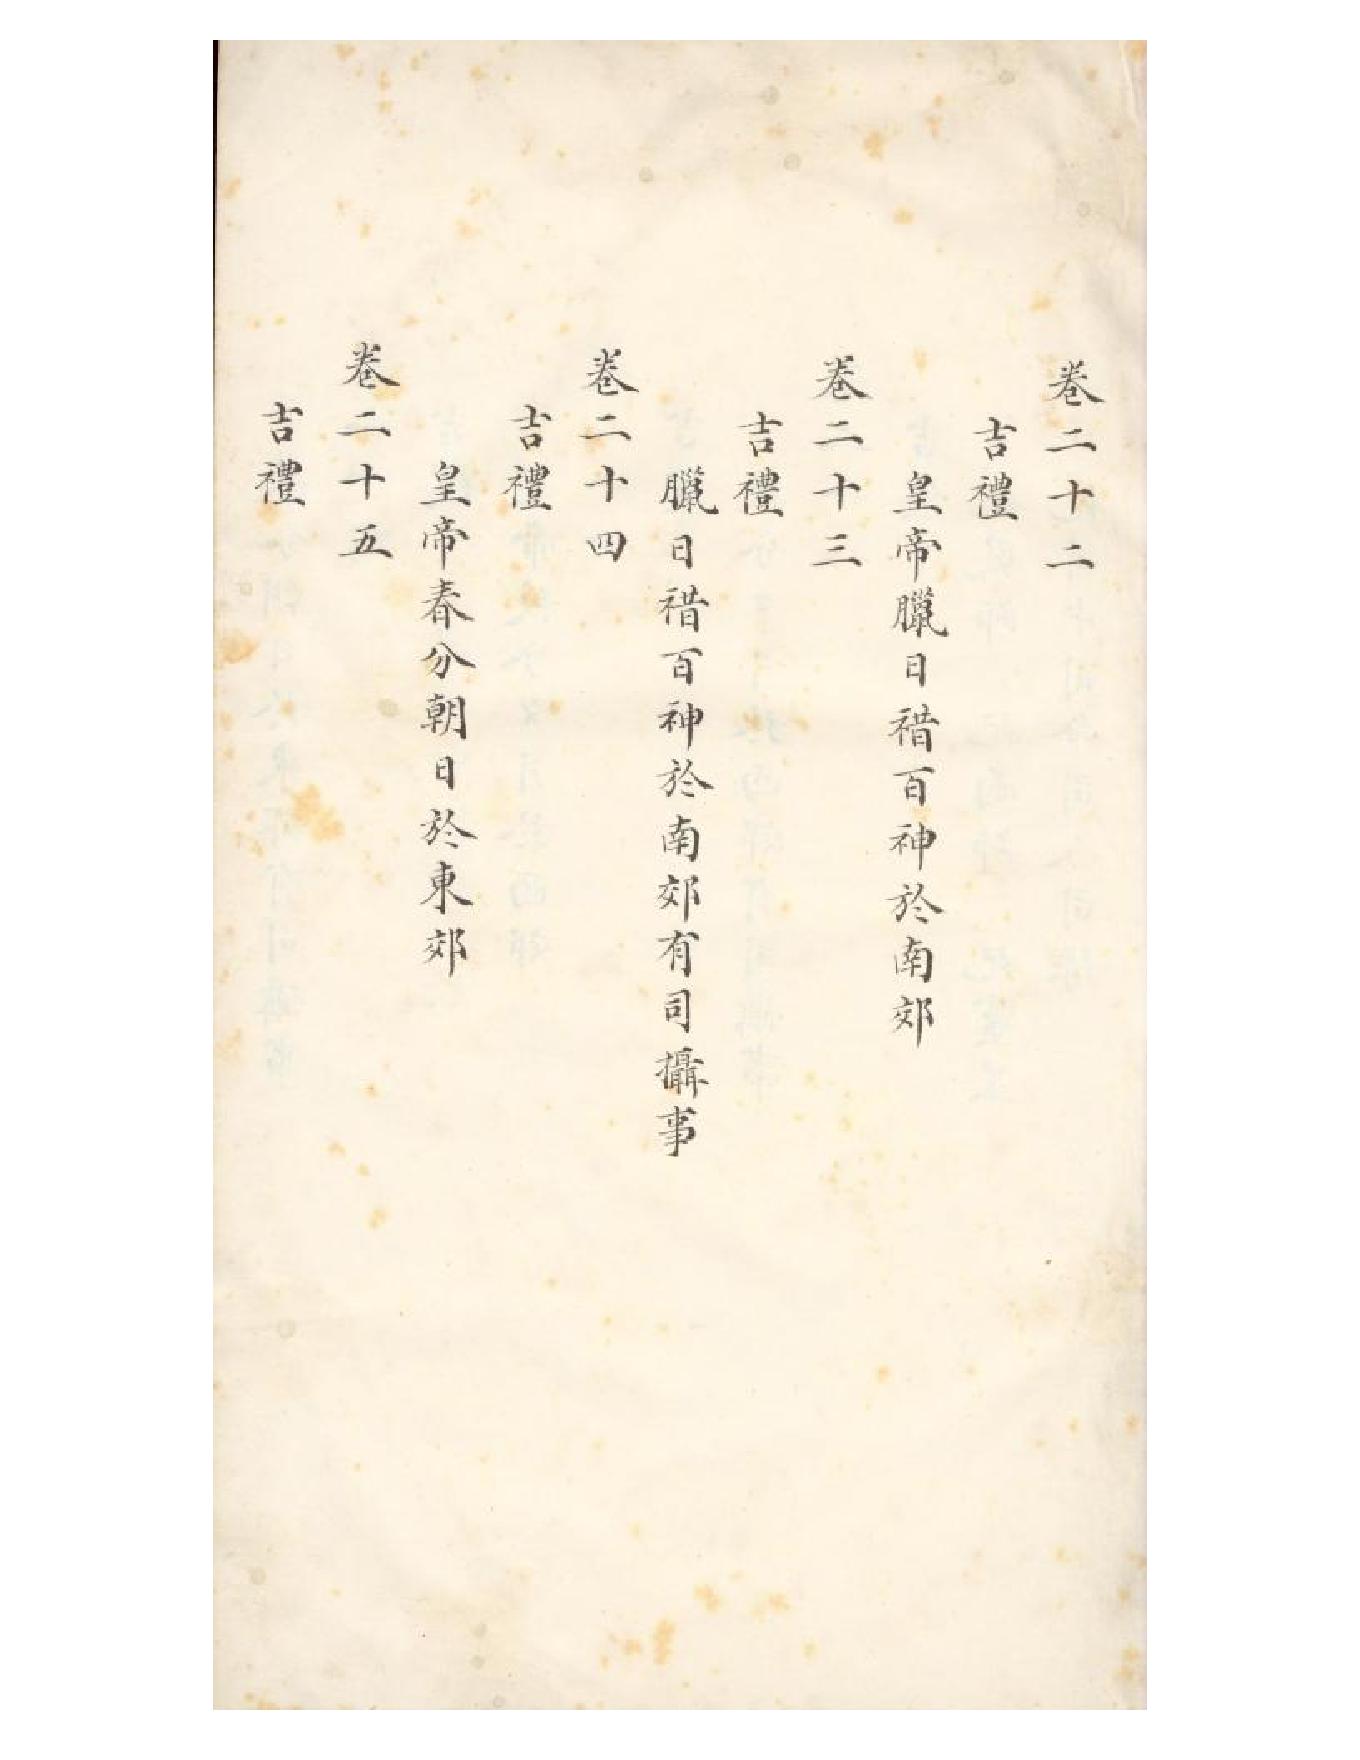 卷二十二
吉禮
皇帝臘日䄍百神於南郊
卷二十三
吉禮
臘日䄍百神於南郊有司攝事
卷二十四
吉禮
皇帝春分朝日於東郊
卷二十五
吉禮